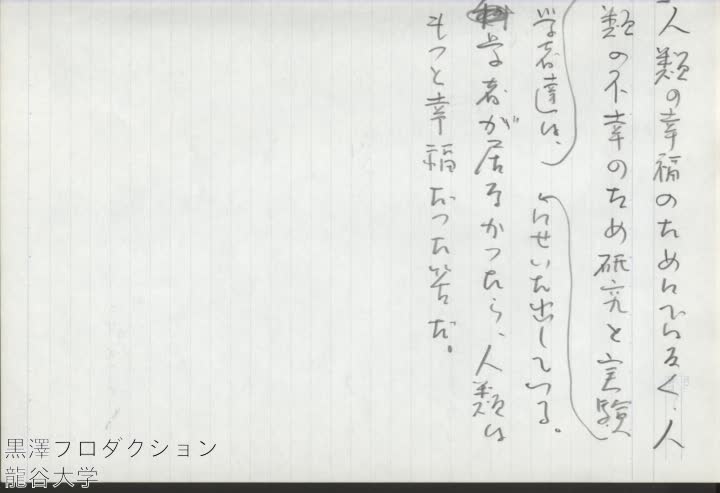 人類の幸福のためにではなく、人
類の不幸のため研究と実験
学者達は、にせいを出している。
学者が居なかったら、人類は
もっと幸福だった筈だ。
黒澤プロダクション
龍谷大学